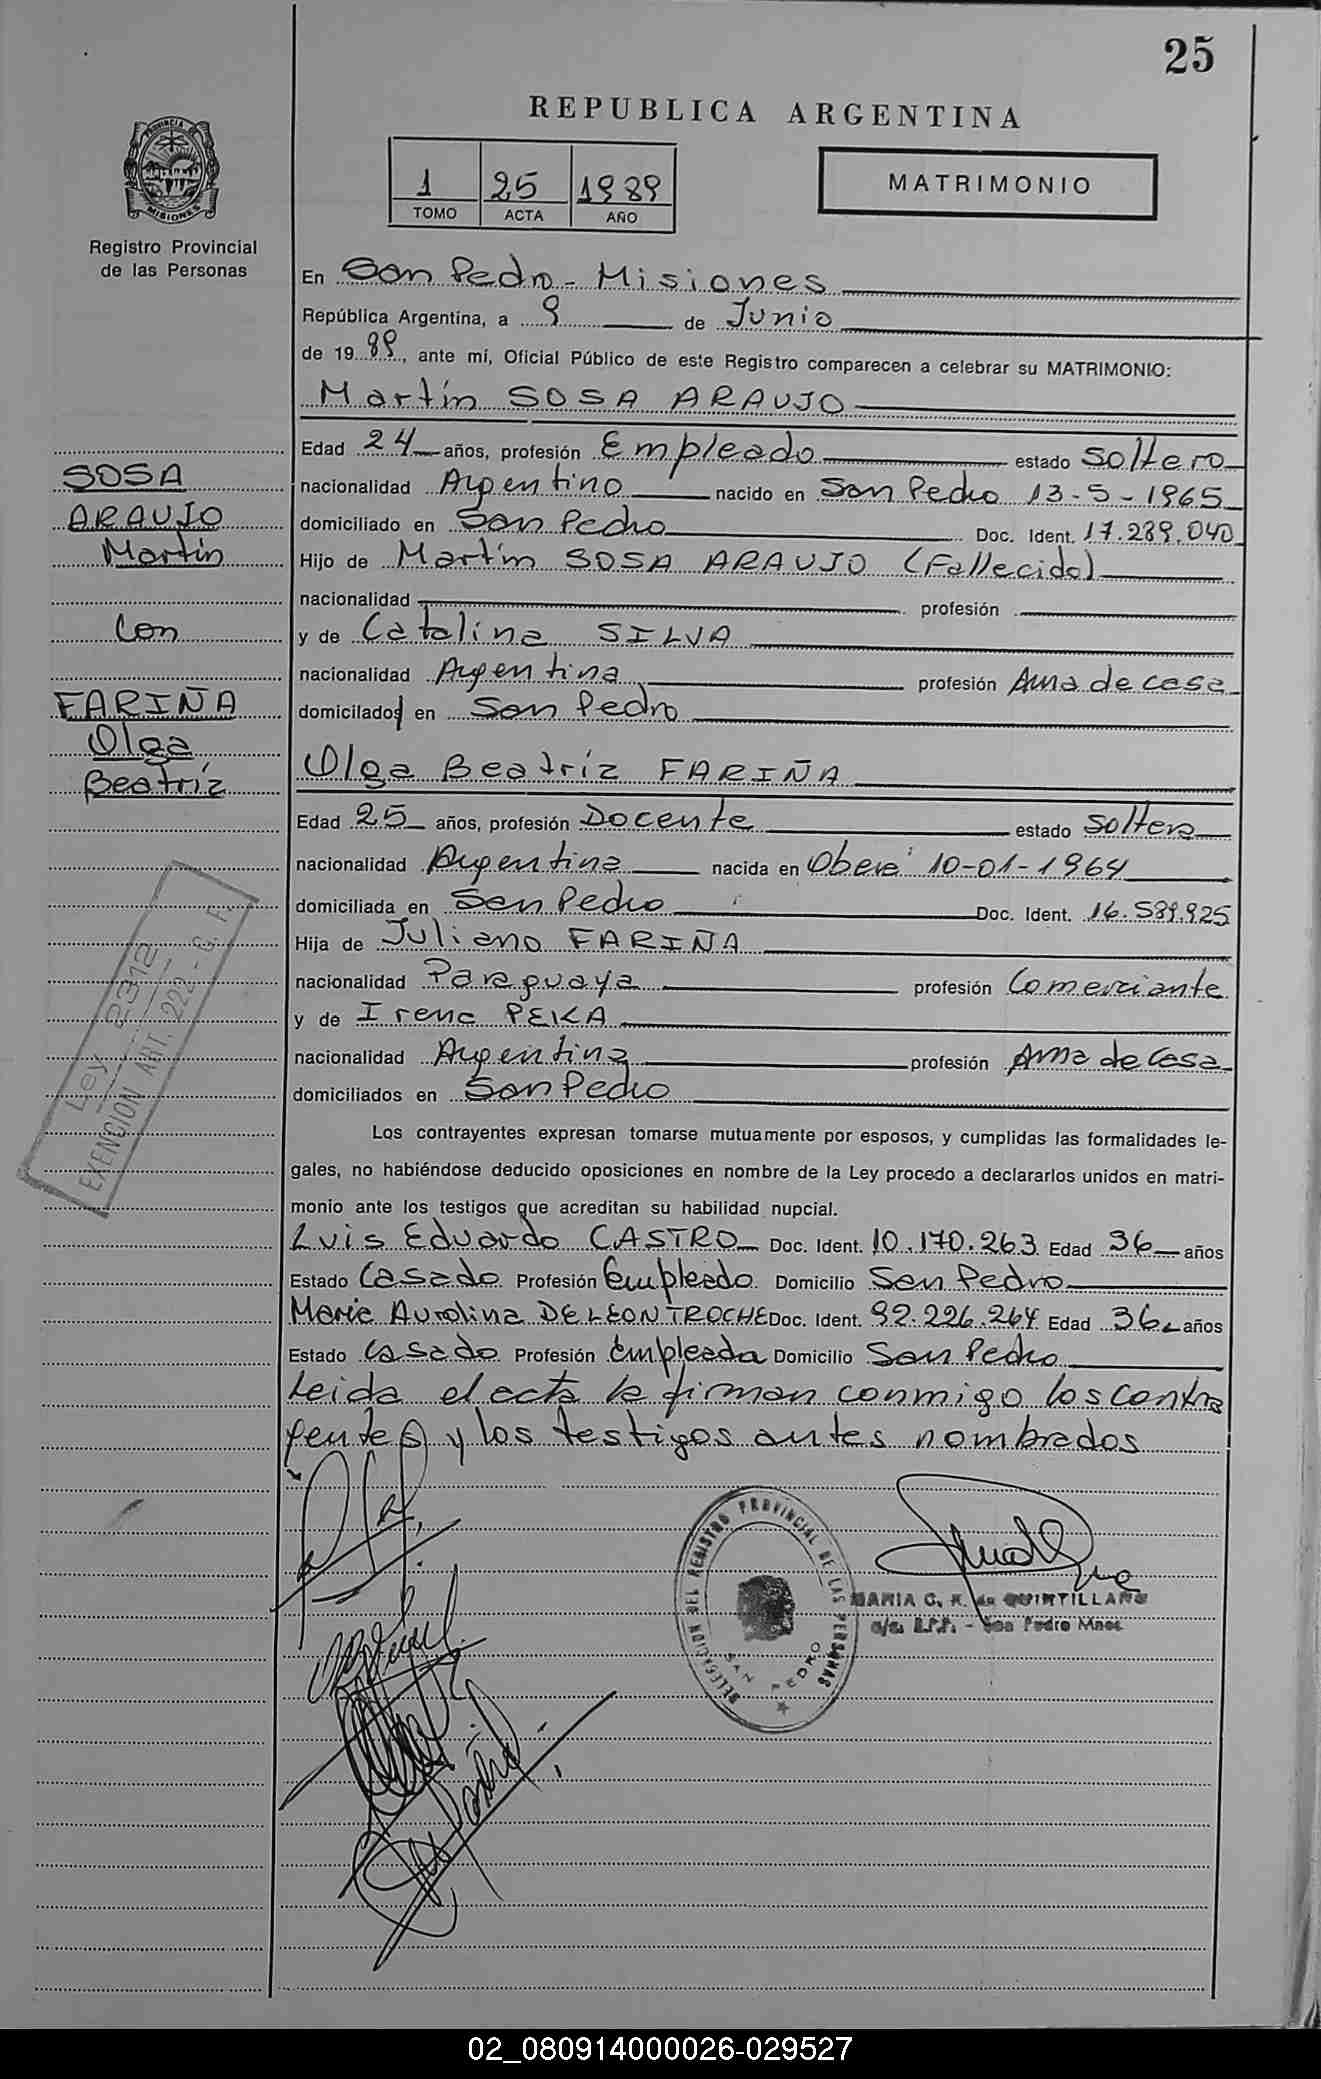 25
REPUBLICA ARGENTINA
1 25 1989
TOMO ACTA AÑO
MATRIMONIO
PROVINCIA DE MISIONES
Registro Provincial
de las Personas
En San Pedro - Misiones
República Argentina, a 9 de Junio
de 1989, ante mí, Oficial Público de este Registro comparecen a celebrar su MATRIMONIO:
Martín SOSA ARAUJO
Edad 24 años, profesión Empleado estado soltero
nacionalidad Argentino nacido en San Pedro 13-5-1965
domiciliado en San Pedro Doc. Ident. 17.289.040
Hijo de Martín SOSA ARAUJO (Fallecido)
nacionalidad profesión
y de Catalina SILVA
nacionalidad Argentina profesión Ama de casa
domiciliados en San Pedro
Olga Beatríz FARIÑA
Edad 25 años, profesión Docente estado soltera
nacionalidad Argentina nacida en Oberá 10-01-1964
domiciliada en San Pedro Doc. Ident. 16.589.925
Hija de Juliano FARIÑA
nacionalidad Paraguaya profesión Comerciante
y de Irena PEKA
nacionalidad Argentina profesión Ama de Casa
domiciliados en San Pedro
Los contrayentes expresan tomarse mutuamente por esposos, y cumplidas las formalidades le-
gales, no habiéndose deducido oposiciones en nombre de la Ley procedo a declararlos unidos en matri-
monio ante los testigos que acreditan su habilidad nupcial.
Luis Eduardo CASTRO Doc. Ident. 10.170.263 Edad 36 años
Estado Casado Profesión Empleado Domicilio San Pedro
Maria Aurolina DE LEON TROCHE Doc. Ident. 92.226.264 Edad 36 años
Estado Casado Profesión Empleada Domicilio San Pedro
Leida el acta la firman conmigo los contra
yentes y los testigos antes nombrados
SOSA
ARAUJO
Martín
Con
FARIÑA
Olga
Beatríz
Ley 2312
EXENCION ART. 222 - C. F.
DELEGACION DEL REGISTRO PROVINCIAL DE LAS PERSONAS
SAN PEDRO
MARIA C. K. de QUINTILLANO
a/c. R.P.P. - San Pedro Mnes
02_080914000026-029527